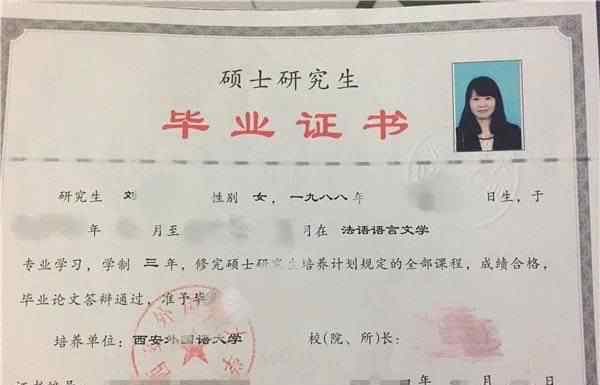 硕士研究生
毕业证书
研究生 刘 性别 女，一九八八年 日生，于
年 月至 月在 法语语言文学
专业学习，学制 三 年，修完硕士研究生培养计划规定的全部课程，成绩合格，
毕业论文答辩通过，准予毕
培养单位：西安外国语大学 校(院、所)长：
证书编号 年 月